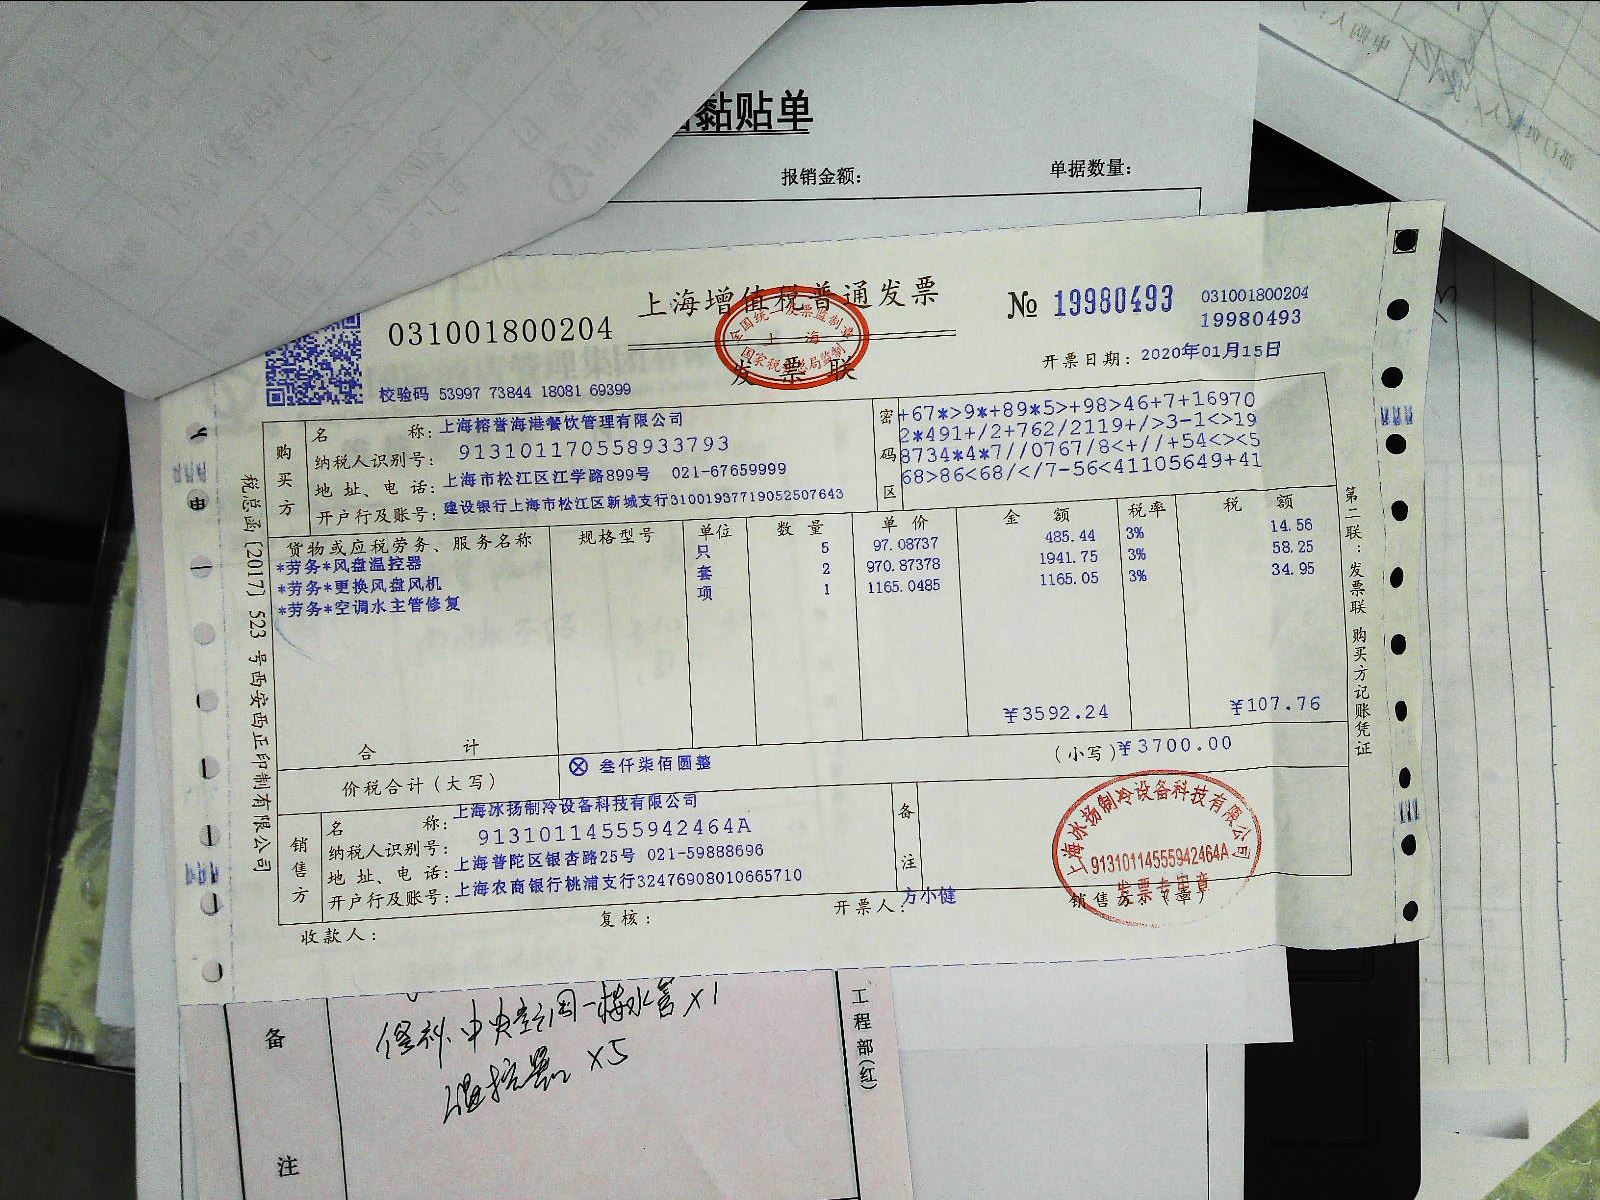 黏贴单
报销金额：
单据数量：
上海增值税普通发票
发票联
031001800204
№ 19980493
031001800204
19980493
校验码 53997 73844 18081 69399
开票日期：2020年01月15日
全国统一发票监制章
上海
国家税务总局监制
购买方
名称：上海榕誉海港餐饮管理有限公司
纳税人识别号：913101170558933793
地址、电话：上海市松江区江学路899号 021-67659999
开户行及账号：建设银行上海市松江区新城支行31001937719052507643
密码区
+67*>9*+89*5>+98>46+7+16970
2*491+/2+762/2119+/>3-1<>19
8734*4*7//0767/8<+//+54<><5
68>86<68/</7-56<41105649+41
货物或应税劳务、服务名称 规格型号 单位 数量 单价 金额 税率 税额
*劳务*风盘温控器 只 5 97.08737 485.44 3% 14.56
*劳务*更换风盘风机 套 2 970.87378 1941.75 3% 58.25
*劳务*空调水主管修复 项 1 1165.0485 1165.05 3% 34.95
合计 ¥3592.24 ¥107.76
价税合计(大写) ⊗ 叁仟柒佰圆整 (小写)¥3700.00
销售方
名称：上海冰扬制冷设备科技有限公司
纳税人识别号：91310114555942464A
地址、电话：上海普陀区银杏路25号 021-59888696
开户行及账号：上海农商银行桃浦支行32476908010665710
备注
收款人：
复核：
开票人：方小健
销售方：(章)
上海冰扬制冷设备科技有限公司
91310114555942464A
发票专用章
税总函[2017] 523 号西安西正印制有限公司
第二联：发票联 购买方记账凭证
备注
水管 X1
温控器 X5
工程部(红)